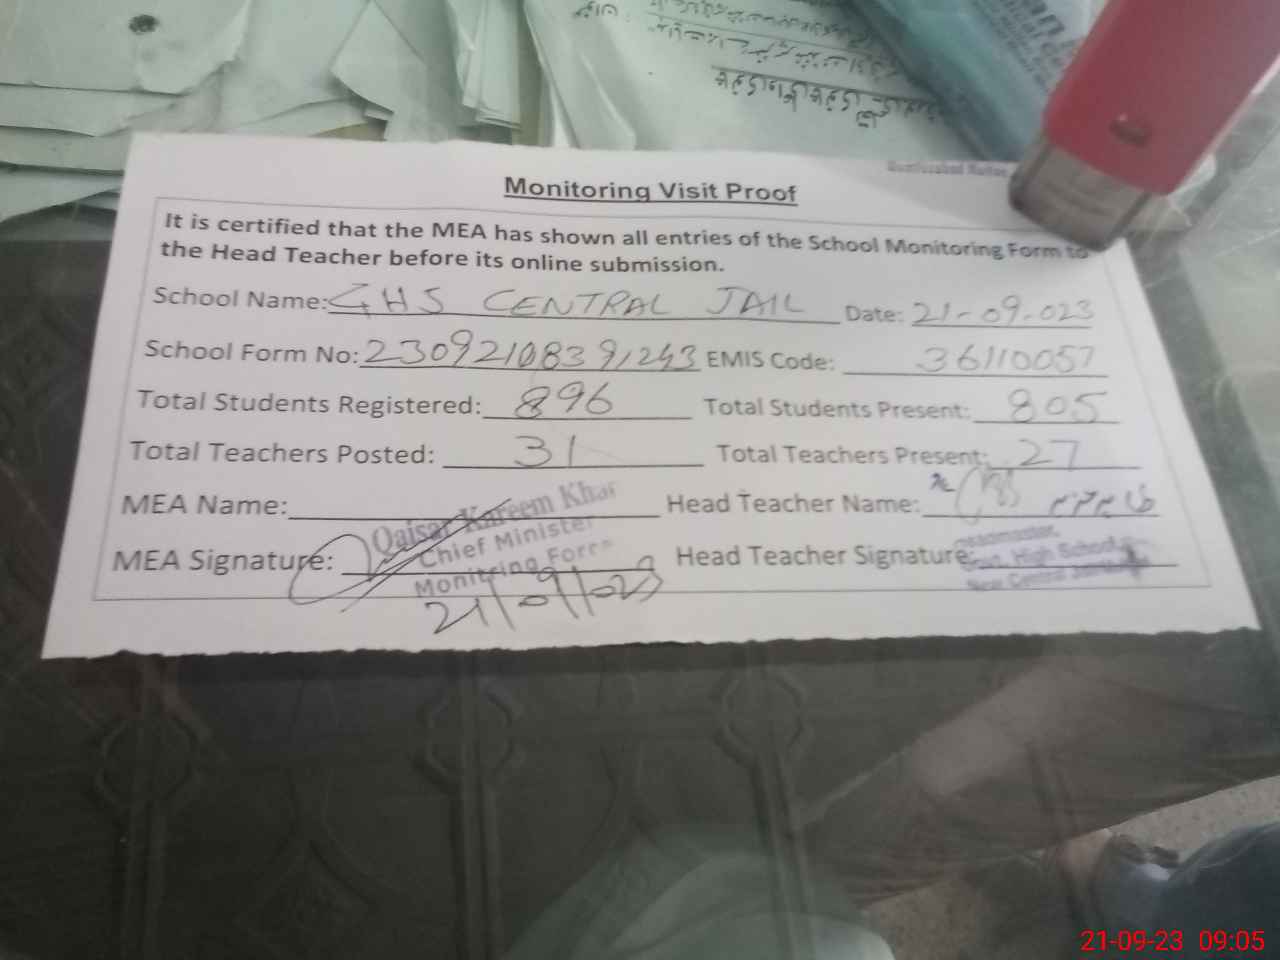 Monitoring Visit Proof
It is certified that the MEA has shown all entries of the School Monitoring Form to
the Head Teacher before its online submission.
School Name: GHS CENTRAL JAIL Date: 21-09-023
School Form No: 23092108391243 EMIS Code: 36110057
Total Students Registered: 896 Total Students Present: 805
Total Teachers Posted: 31 Total Teachers Present: 27
MEA Name: Head Teacher Name:
Qaisar Kareem Khan
Chief Minister
Monitring Force
MEA Signature: Head Teacher Signature:
Headmaster,
High School
New Central Jail
21/09/023
21-09-23 09:05